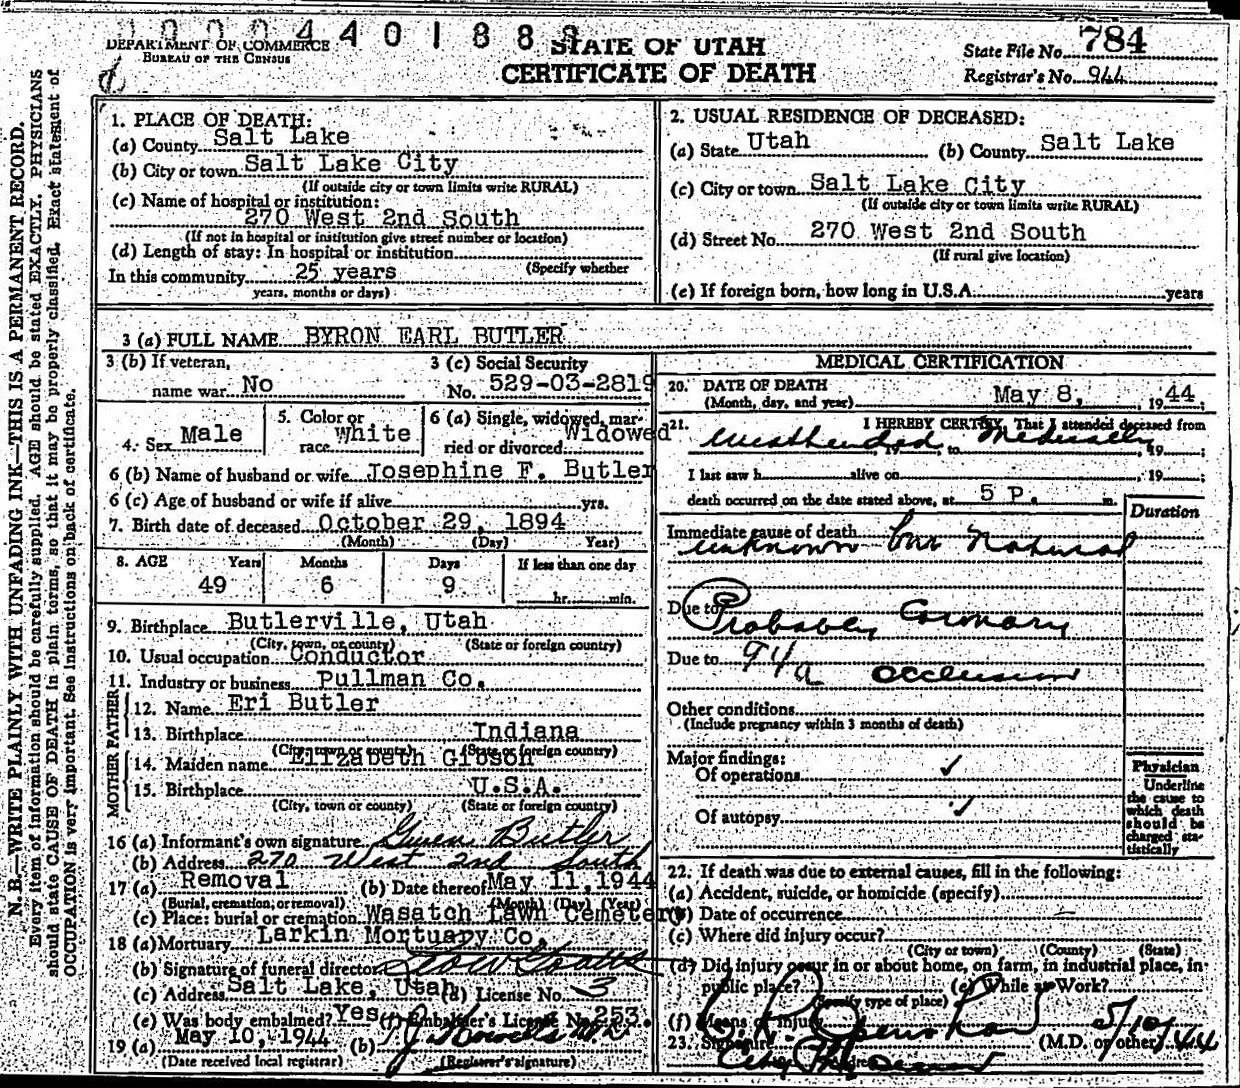 00004401888
DEPARTMENT OF COMMERCE
BUREAU OF THE CENSUS
STATE OF UTAH
CERTIFICATE OF DEATH
State File No. 784
Registrar's No. 944
N. B.—WRITE PLAINLY WITH UNFADING INK—THIS IS A PERMANENT RECORD.
Every item of information should be carefully supplied. AGE should be stated EXACTLY. PHYSICIANS
should state CAUSE OF DEATH in plain terms, so that it may be properly classified. Exact statement of
OCCUPATION is very important. See instructions on back of certificate.
1. PLACE OF DEATH:
(a) County Salt Lake
(b) City or town Salt Lake City
(If outside city or town limits write RURAL)
(c) Name of hospital or institution:
270 West 2nd South
(If not in hospital or institution give street number or location)
(d) Length of stay: In hospital or institution
(Specify whether
In this community 25 years
years, months or days)
2. USUAL RESIDENCE OF DECEASED:
(a) State Utah (b) County Salt Lake
(c) City or town Salt Lake City
(If outside city or town limits write RURAL)
(d) Street No. 270 West 2nd South
(If rural give location)
(e) If foreign born, how long in U.S.A. years
3 (a) FULL NAME BYRON EARL BUTLER
3 (b) If veteran, name war No
3 (c) Social Security No. 529-03-2819
4. Sex Male
5. Color or race White
6 (a) Single, widowed, married or divorced Widowed
6 (b) Name of husband or wife Josephine F. Butler
6 (c) Age of husband or wife if alive yrs.
7. Birth date of deceased October 29, 1894
(Month) (Day) Year)
8. AGE Years Months Days If less than one day
49 6 9 hr. min.
9. Birthplace Butlerville, Utah
(City, town, or county) (State or foreign country)
10. Usual occupation Conductor
11. Industry or business Pullman Co.
FATHER
12. Name Eri Butler
13. Birthplace Indiana
(City, town or county) (State or foreign country)
MOTHER
14. Maiden name Elizabeth Gibson
15. Birthplace U.S.A.
(City, town or county) (State or foreign country)
16 (a) Informant's own signature Gwen Butler
(b) Address 270 West 2nd South
17 (a) Removal (b) Date thereof May 11, 1944
(Burial, cremation, or removal) (Month) (Day) (Year)
(c) Place: burial or cremation Wasatch Lawn Cemetery
18 (a) Mortuary Larkin Mortuary Co.
(b) Signature of funeral director
(c) Address Salt Lake, Utah (d) License No. 3
(e) Was body embalmed? Yes (f) Embalmer's License No. 253.
19 (a) May 10, 1944 (b)
(Date received local registrar) (Registrar's signature)
MEDICAL CERTIFICATION
20. DATE OF DEATH
(Month, day, and year) May 8, 1944
21. I HEREBY CERTIFY, That I attended deceased from
unattended Medically, 19 to , 19 ;
I last saw h alive on , 19 ;
death occurred on the date stated above, at 5 P. m.
Duration
Immediate cause of death
unknown but Natural
Due to Probably Coronary
Due to 94a occlusion
Other conditions
(Include pregnancy within 3 months of death)
Major findings:
Of operations ✓
Of autopsy ✓
Physician
Underline
the cause to
which death
should be
charged sta-
tistically
22. If death was due to external causes, fill in the following:
(a) Accident, suicide, or homicide (specify)
(b) Date of occurrence
(c) Where did injury occur?
(City or town) (County) (State)
(d) Did injury occur in or about home, on farm, in industrial place, in
public place? (e) While at Work?
(Specify type of place)
(f) Means of injury
23. Signature (M.D. or other) 5/10/44
City Physician